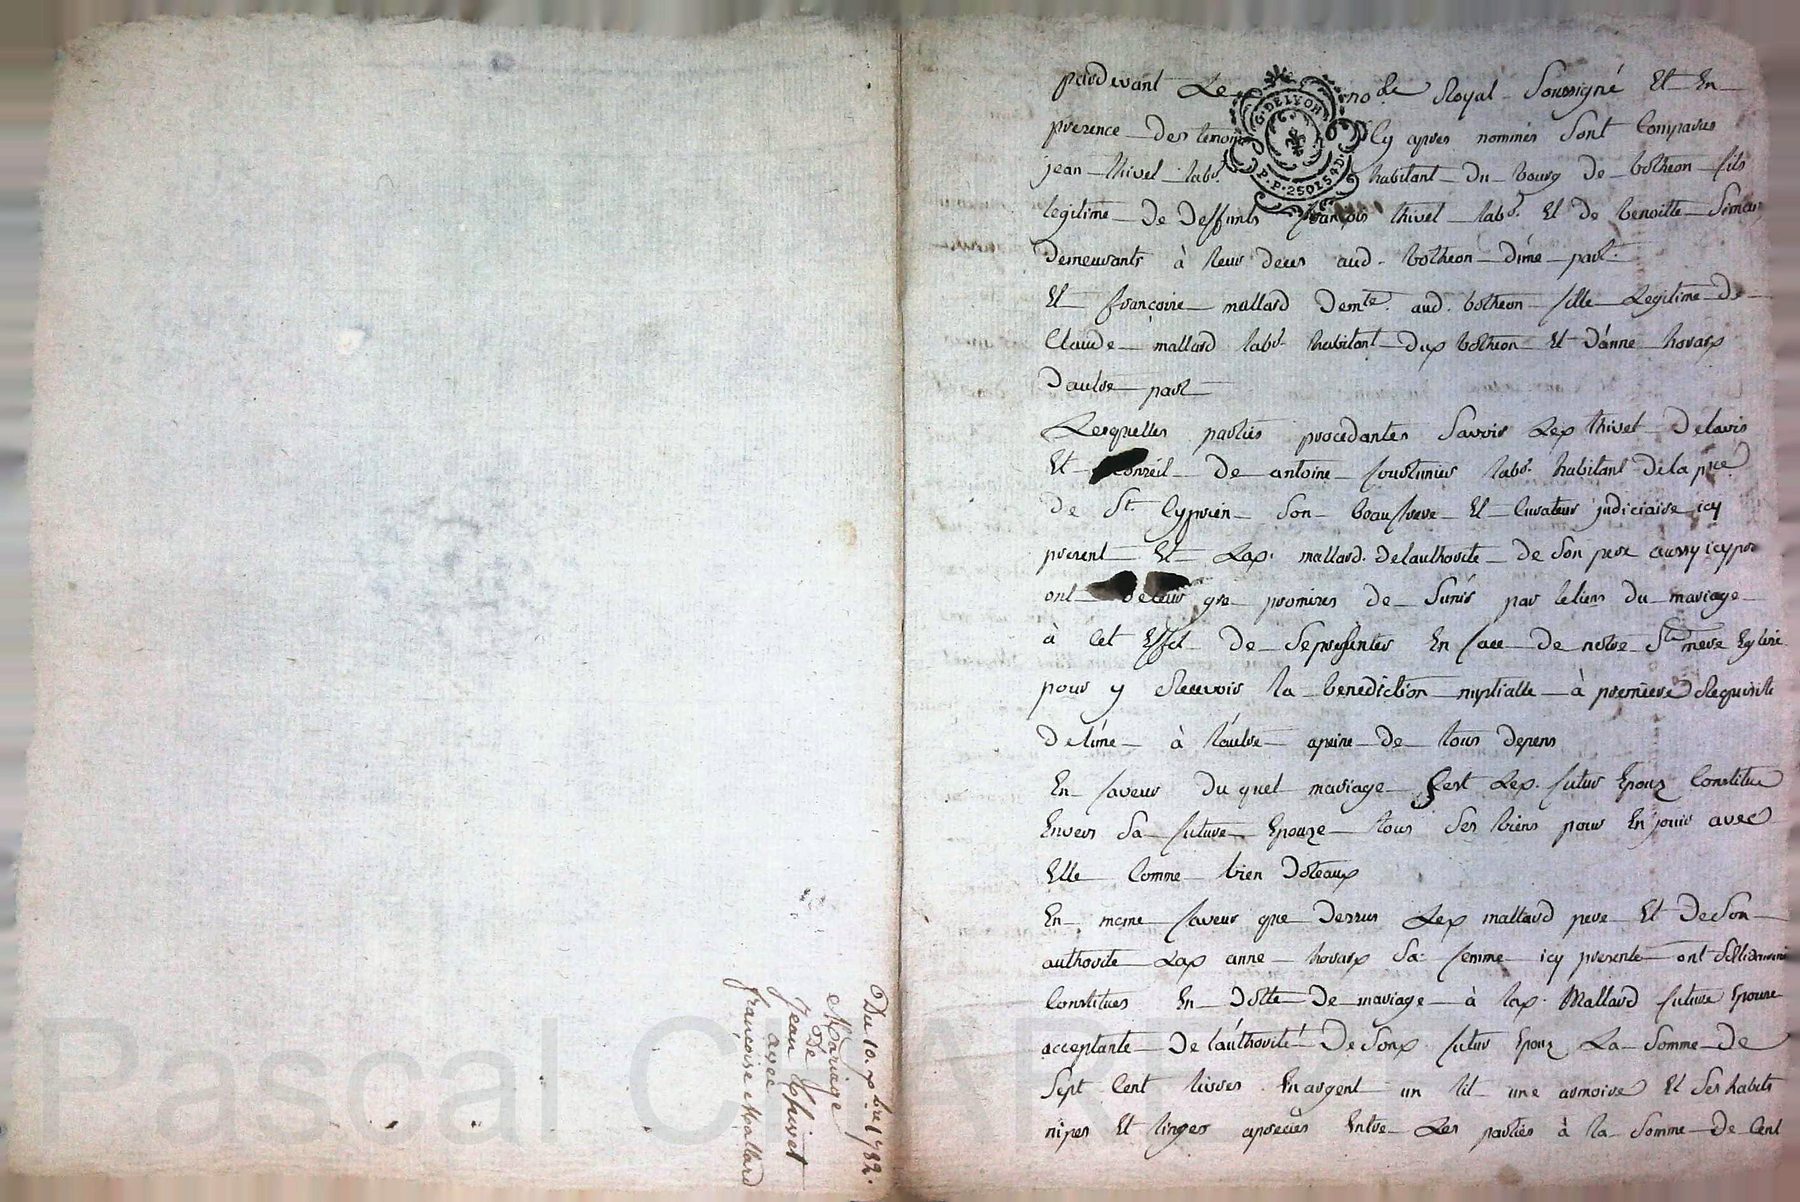 Du 10. xbre 1782.
Mariage
De
Jean Thivet
avec
françoise Mallard
pardevant Le no.re Royal Soussigné Et En
presence des temoins Cy apres nommés Sont Comparus
G. DE LYON
P.P. 250154D
jean thivel labr. habitant du bourg de botheon fils
legitime de deffunts françois thivel labr. Et de benoitte Simon
demeurants à leur deces aud. botheon d'une part.
Et françoise mallard demte. aud. botheon fille Legitime de
Claude mallard labr. habitant dup botheon Et d'anne
d'autre part
Lesquelles parties procedantes Savoir Lep thivel delavis
Et Conseil de antoine labr. habitant de la psse
de St. Cyprien Son beau frere Et Curateur judiciaire icy
present Et Lap. mallard de lauthorité de Son pere aussy icy pnt
ont de leur gre promises de Sunir par le liens du mariage
à Cet Effet de Se presenter En face de notre Ste mere Eglise
pour y Recevoir la benediction nuptialle à premiere Requisite
de l'une à l'autre apeine de tous depens
En faveur du quel mariage Sest Lep. futur Epoux Constitue
Envers Sa future Epouze tous Ses biens pour En jouir avec
Elle Comme bien doteaux
En meme faveur que dessus Lep mallard pere Et de Son
authorité Lap anne Sa femme icy presente ont Sollidairemt
Constitues En dotte de mariage à lap. Mallard future Epouse
acceptante de l'authorité de Sonp futur Epoux La Somme de
Sept Cent livres En argent un lit une armoire Et Ses habits
nipes Et linges apreciés Entre Les parties à la Somme de Cent
Pascal CHA